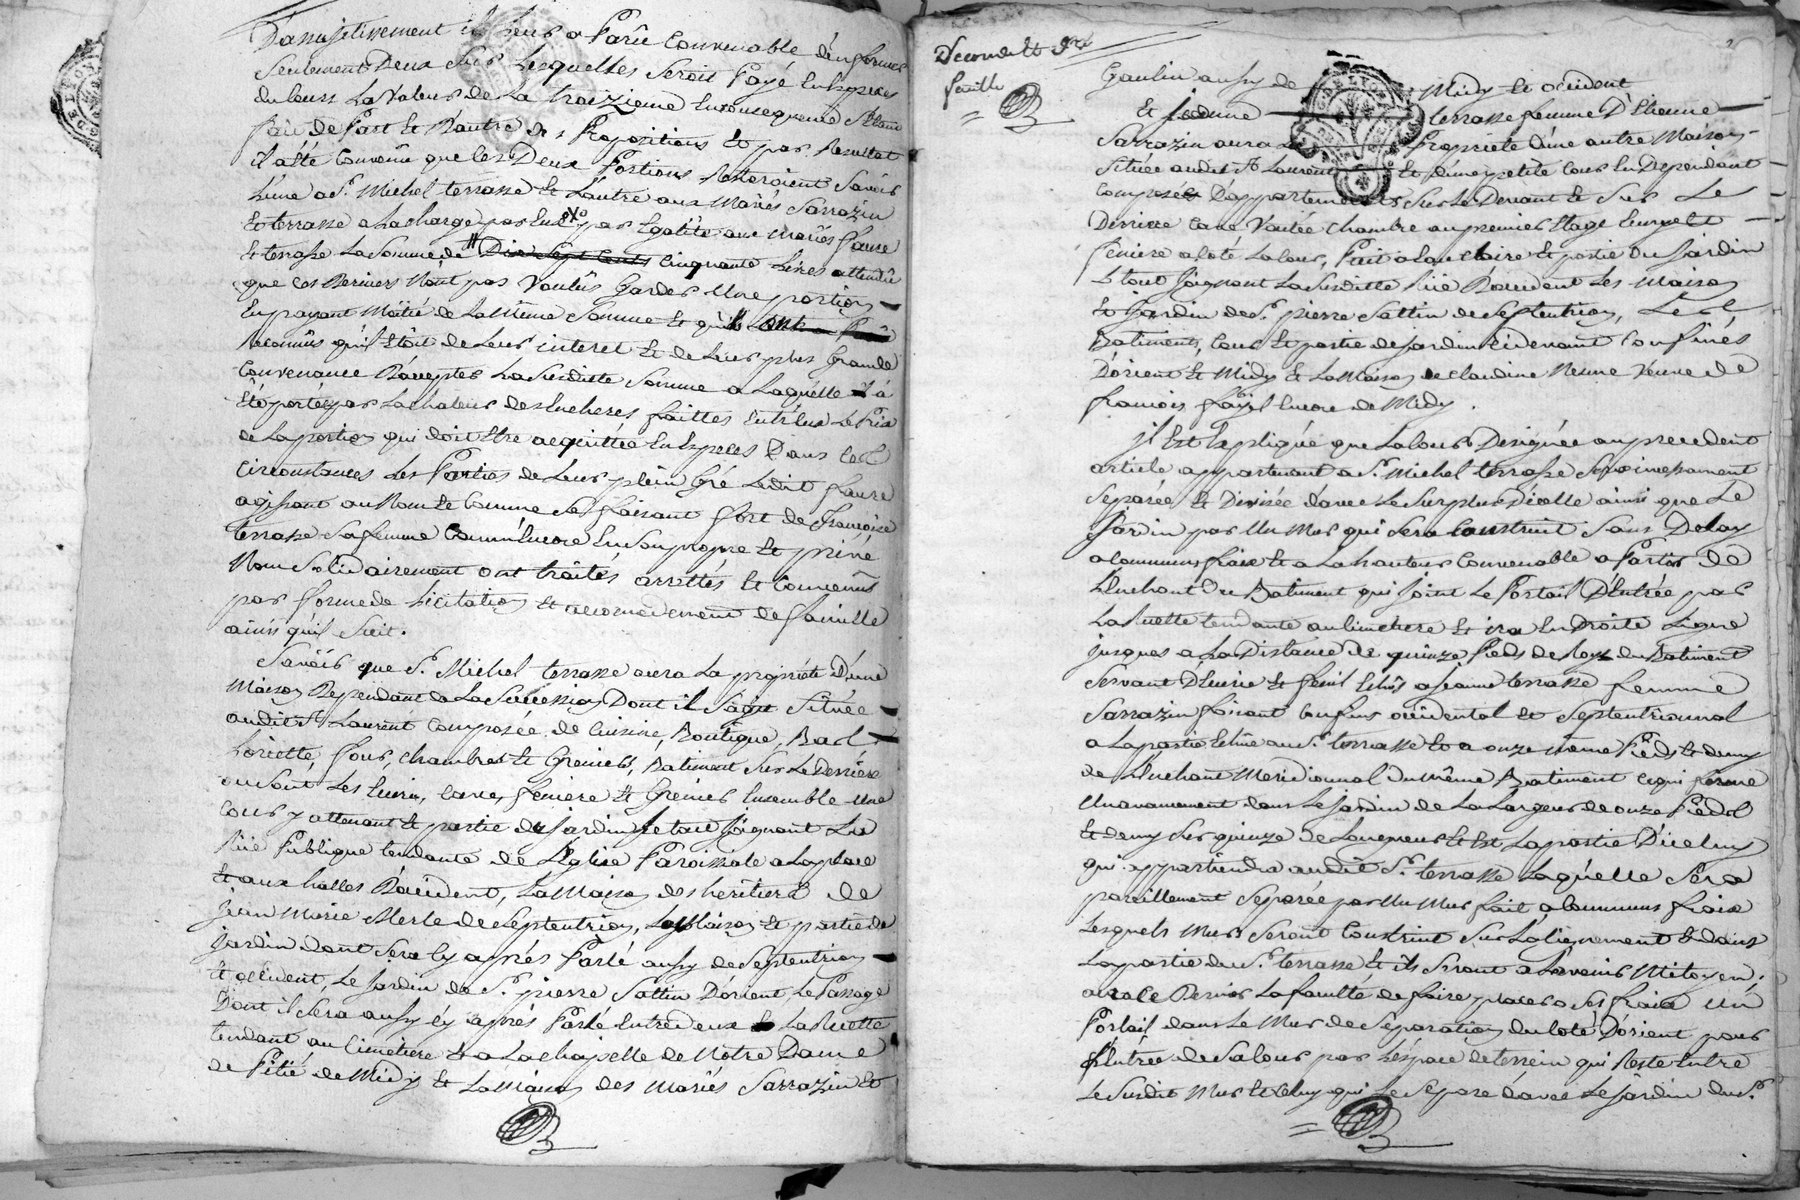 D'assujetissement il leur a Parû Convenable d'en former
Seulement Deux Sur Lesquelles Seroit Payé En Especes
du Cours La Valeur de La troizieme En Consequence Etant
fait de Part Et D'autre des Propositions Et par Resultat
il a été Convenû que les Deux Portions Resteroient Savoir
L'une a Sr. Michel terrasse Et L'autre aux Mariés Sarrazin
Et terrasse a La charge par Eux par Egalité aux Mariés faure
Et terrasse La Somme de Dix Sept Cents Cinquante Livres attendû
que ces Derniers N'ont pas Voulûs Garder Une portion
En payant Moitié de La Même Somme Et qu'ils
Reconnûs qu'il Etoit de Leur interet Et de Leur plus Grande
Convenance D'accepter La Susdite Somme a Laquelle a
Eté portée par La chaleur des Encheres faittes Entr'eux Le Prix
de La portion qui doit Etre acquittée En Especes Dans Ces
Circonstances Les Parties de Leur plein Gré Ledit faure
agissant au Nom Et Comme Se faisant fort de Françoise
terrasse Sa femme Comm'Encore En Son propre Et privé
Nom Solidairement ont traités arrettés Et Convenus
par forme de Licitation Et accomodement de famille
ainsi qu'il Suit.
Savoir que Sr. Michel terrasse aura La propriété D'une
Maison Dependant de La Succession Dont il S'agit Située
audit St. Laurent Composée de Cuisine, Boutique,
four, chambres Et Greniers, Batiment Sur Le Derriere
ou Sont Les Ecurie, cave, feniere Et Grenier Ensemble Une
Cour y attenant Et partie de Jardin Le tout Joignant La
Rüe Publique tendante de L'Eglise Paroissiale a La place
Et aux halles D'occident, La Maison des heritiers de
Jean Marie Merle de Septentrion, La Maison Et partie de
Jardin dont Sera Cy après Parlé aussy de Septentrion
Et occident, Le Jardin de Sr. pierre Sattin D'orient Le Passage
Dont il Sera aussy Cy après Parlé Entre Deux La Ruette
tendant au Cimetiere Et a La chapelle de Notre Dame
de Pitié de Midy Et La Maison des Mariés Sarrazin Et
Seconde Et Dre
feuille
Gaulin aussy de Midy Et occident
Et Jeanne terrasse femme D'Etienne
Sarrazin aura La Propriété D'une autre Maison
Située audit St. Laurent Et d'une petite Cour En Dependant
Composée D'appartements Sur Le Devant Et Sur Le
Derriere Cave Voutée Chambre au premier Etage Ecurie Et
feniere a Coté La Cour, Puit a La Et partie Du Jardin
Le tout Joignant La Susditte Rüe D'occident Les Maison
Et Jardin de Sr. pierre Sattin de Septentrion, Les
Batiments, Cour Et partie de Jardin Cidevant Confinés
D'orient Et Midy Et La Maison de Claudine Mesme Veuve de
francois Encore de Midy.
Il Est Expliqué que La Cour Designée au precedent
article appartenant a Sr. Michel terrasse Sera incessament
Separée Et Divisée d'avec Le Surplus D'icelle ainsi que Le
Jardin par Un Mur qui Sera Construit Sans Delay
a Communs fraix Et a La hauteur Convenable a Partir de
L'Enchant du Batiment qui Joint Le Portail D'Entrée par
La Ruette tendante au Cimetiere Et ira En Droite Ligne
Jusques a La Distance de quinze Pieds de Roy du Batiment
Servant D'Ecurie Et fenil Echûs a Jeanne terrasse femme
Sarrazin faisant Confins occidental Et Septentrionnal
a La partie Echue au Sr. terrasse Et a onze même Pieds Et demy
de L'Enchant Meridionnal du Même Batiment Ce qui forme
Un avancement dans Le Jardin de La Largeur de onze Pieds
Et demy Sur quinze de Longueur Et Est La partie D'iceluy
qui appartiendra audit Sr. terrasse Laquelle Sera
pareillement Separée par Un Mur fait a Communs fraix
Lesquels Murs Seront Construit Sur L'alignement Et dans
La partie du Sr. terrasse Et ils Seront a L'avenir Mitoyen,
aura Ce Dernier La faculté de faire placer a Ses fraix Un
Portail dans Le Mur de Separation du Coté D'orient pour
L'Entrée de Sa Cour par L'Espace de terrein qui Reste Entre
Le Susdit Mur Et Celuy qui Le Separe d'avec Le Jardin du Sr.